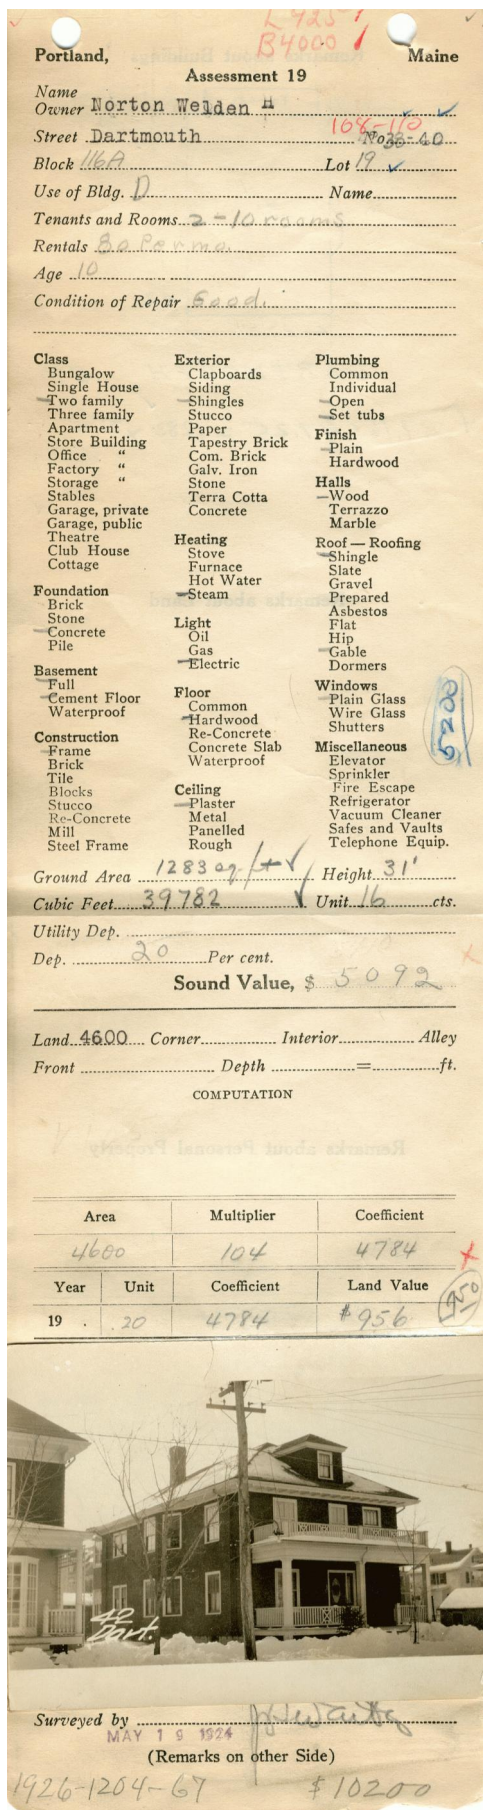 L 925
B4000
Portland, Maine
Assessment 19
Name
Owner Norton Welden H
108-110
Street Dartmouth No. 38-40
Block 116A Lot 19
Use of Bldg. D Name
Tenants and Rooms 2-10 rooms
Rentals 80 Per mo.
Age 10
Condition of Repair Good.
Class
Bungalow
Single House
Two family
Three family
Apartment
Store Building
Office "
Factory "
Storage "
Stables
Garage, private
Garage, public
Theatre
Club House
Cottage
Foundation
Brick
Stone
Concrete
Pile
Basement
Full
Cement Floor
Waterproof
Construction
Frame
Brick
Tile
Blocks
Stucco
Re-Concrete
Mill
Steel Frame
Exterior
Clapboards
Siding
Shingles
Stucco
Paper
Tapestry Brick
Com. Brick
Galv. Iron
Stone
Terra Cotta
Concrete
Heating
Stove
Furnace
Hot Water
Steam
Light
Oil
Gas
Electric
Floor
Common
Hardwood
Re-Concrete
Concrete Slab
Waterproof
Ceiling
Plaster
Metal
Panelled
Rough
Plumbing
Common
Individual
Open
Set tubs
Finish
Plain
Hardwood
Halls
Wood
Terrazzo
Marble
Roof — Roofing
Shingle
Slate
Gravel
Prepared
Asbestos
Flat
Hip
Gable
Dormers
Windows
Plain Glass
Wire Glass
Shutters
Miscellaneous
Elevator
Sprinkler
Fire Escape
Refrigerator
Vacuum Cleaner
Safes and Vaults
Telephone Equip.
5200
Ground Area 1283 sq. ft Height 31'
Cubic Feet 39782 Unit 16 cts.
Utility Dep.
Dep. 20 Per cent.
Sound Value, $ 5092
Land 4600 Corner Interior Alley
Front Depth = ft.
COMPUTATION
Area Multiplier Coefficient
4600 104 4784
Year Unit Coefficient Land Value
19 . .20 4784 $956
950
40
Dart.
Surveyed by
MAY 19 1924
(Remarks on other Side)
1926-1204-67 $10200